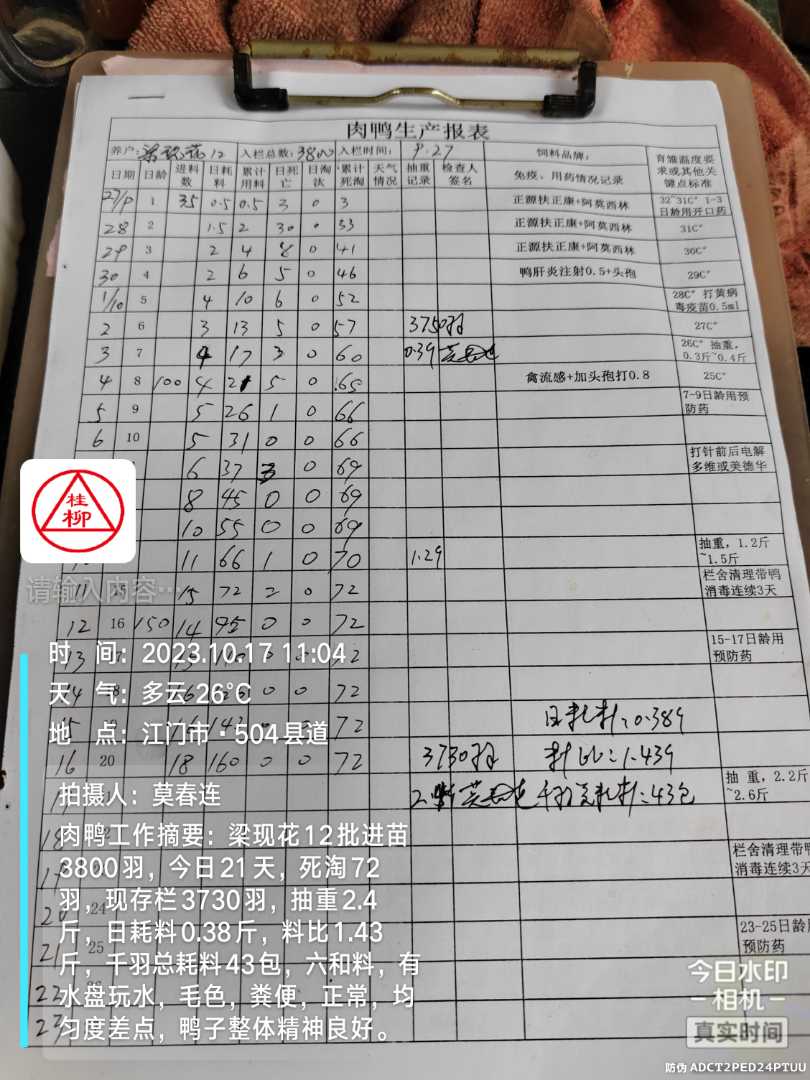 肉鸭生产报表
养户: 梁现花12 入栏总数: 3800 入栏时间: 9.27 饲料品牌: 育雏温度要求或其他关键点标准
日期 日龄 进料数 日耗料 累计用料 日死亡 日淘汰 累计死淘 天气情况 抽重记录 检查人签名 免疫、用药情况记录
27/9 1 35 0.5 0.5 3 0 3 正源扶正康+阿莫西林 32~31C° 1-3日龄用开口药
28 2 1.5 2 30 0 33 正源扶正康+阿莫西林 31C°
29 3 2 4 8 0 41 正源扶正康+阿莫西林 30C°
30 4 2 6 5 0 46 鸭肝炎注射0.5+头孢 29C°
1/10 5 4 10 6 0 52 28C° 打黄病毒疫苗0.5ml
2 6 3 13 5 0 57 3750羽 27C°
3 7 4 17 3 0 60 0.39 26C° 抽重,0.3斤~0.4斤
4 8 100 4 21 5 0 65 禽流感+加头孢打0.8 25C°
5 9 5 26 1 0 66 7-9日龄用预防药
6 10 5 31 0 0 66
6 37 3 0 69 打针前后电解多维或美德华
8 45 0 0 69
10 55 0 0 69
11 66 1 0 70 1.29 抽重,1.2斤~1.5斤
11 15 15 72 2 0 72 栏舍清理带鸭消毒连续3天
12 16 150 14 95 0 0 72
13 72 15-17日龄用预防药
14 0 0 72
15 0 0 72 日耗料:0.389
16 20 18 160 0 0 72 3730羽 料比:1.439
千羽总耗料:43包 抽重,2.2斤~2.6斤
18 栏舍清理带鸭消毒连续3天
19
20 24 23-25日龄用预防药
21 25
22
23
桂柳
请输入内容…
时 间: 2023.10.17 11:04
天 气: 多云 26℃
地 点: 江门市·504县道
拍摄人: 莫春连
肉鸭工作摘要: 梁现花12批进苗
3800羽,今日21天,死淘72
羽,现存栏3730羽,抽重2.4
斤,日耗料0.38斤,料比1.43
斤,千羽总耗料43包,六和料,有
水盘玩水,毛色,粪便,正常,均
匀度差点,鸭子整体精神良好。
今日水印
相机
真实时间
防伪 ADCT2PED24PTUU